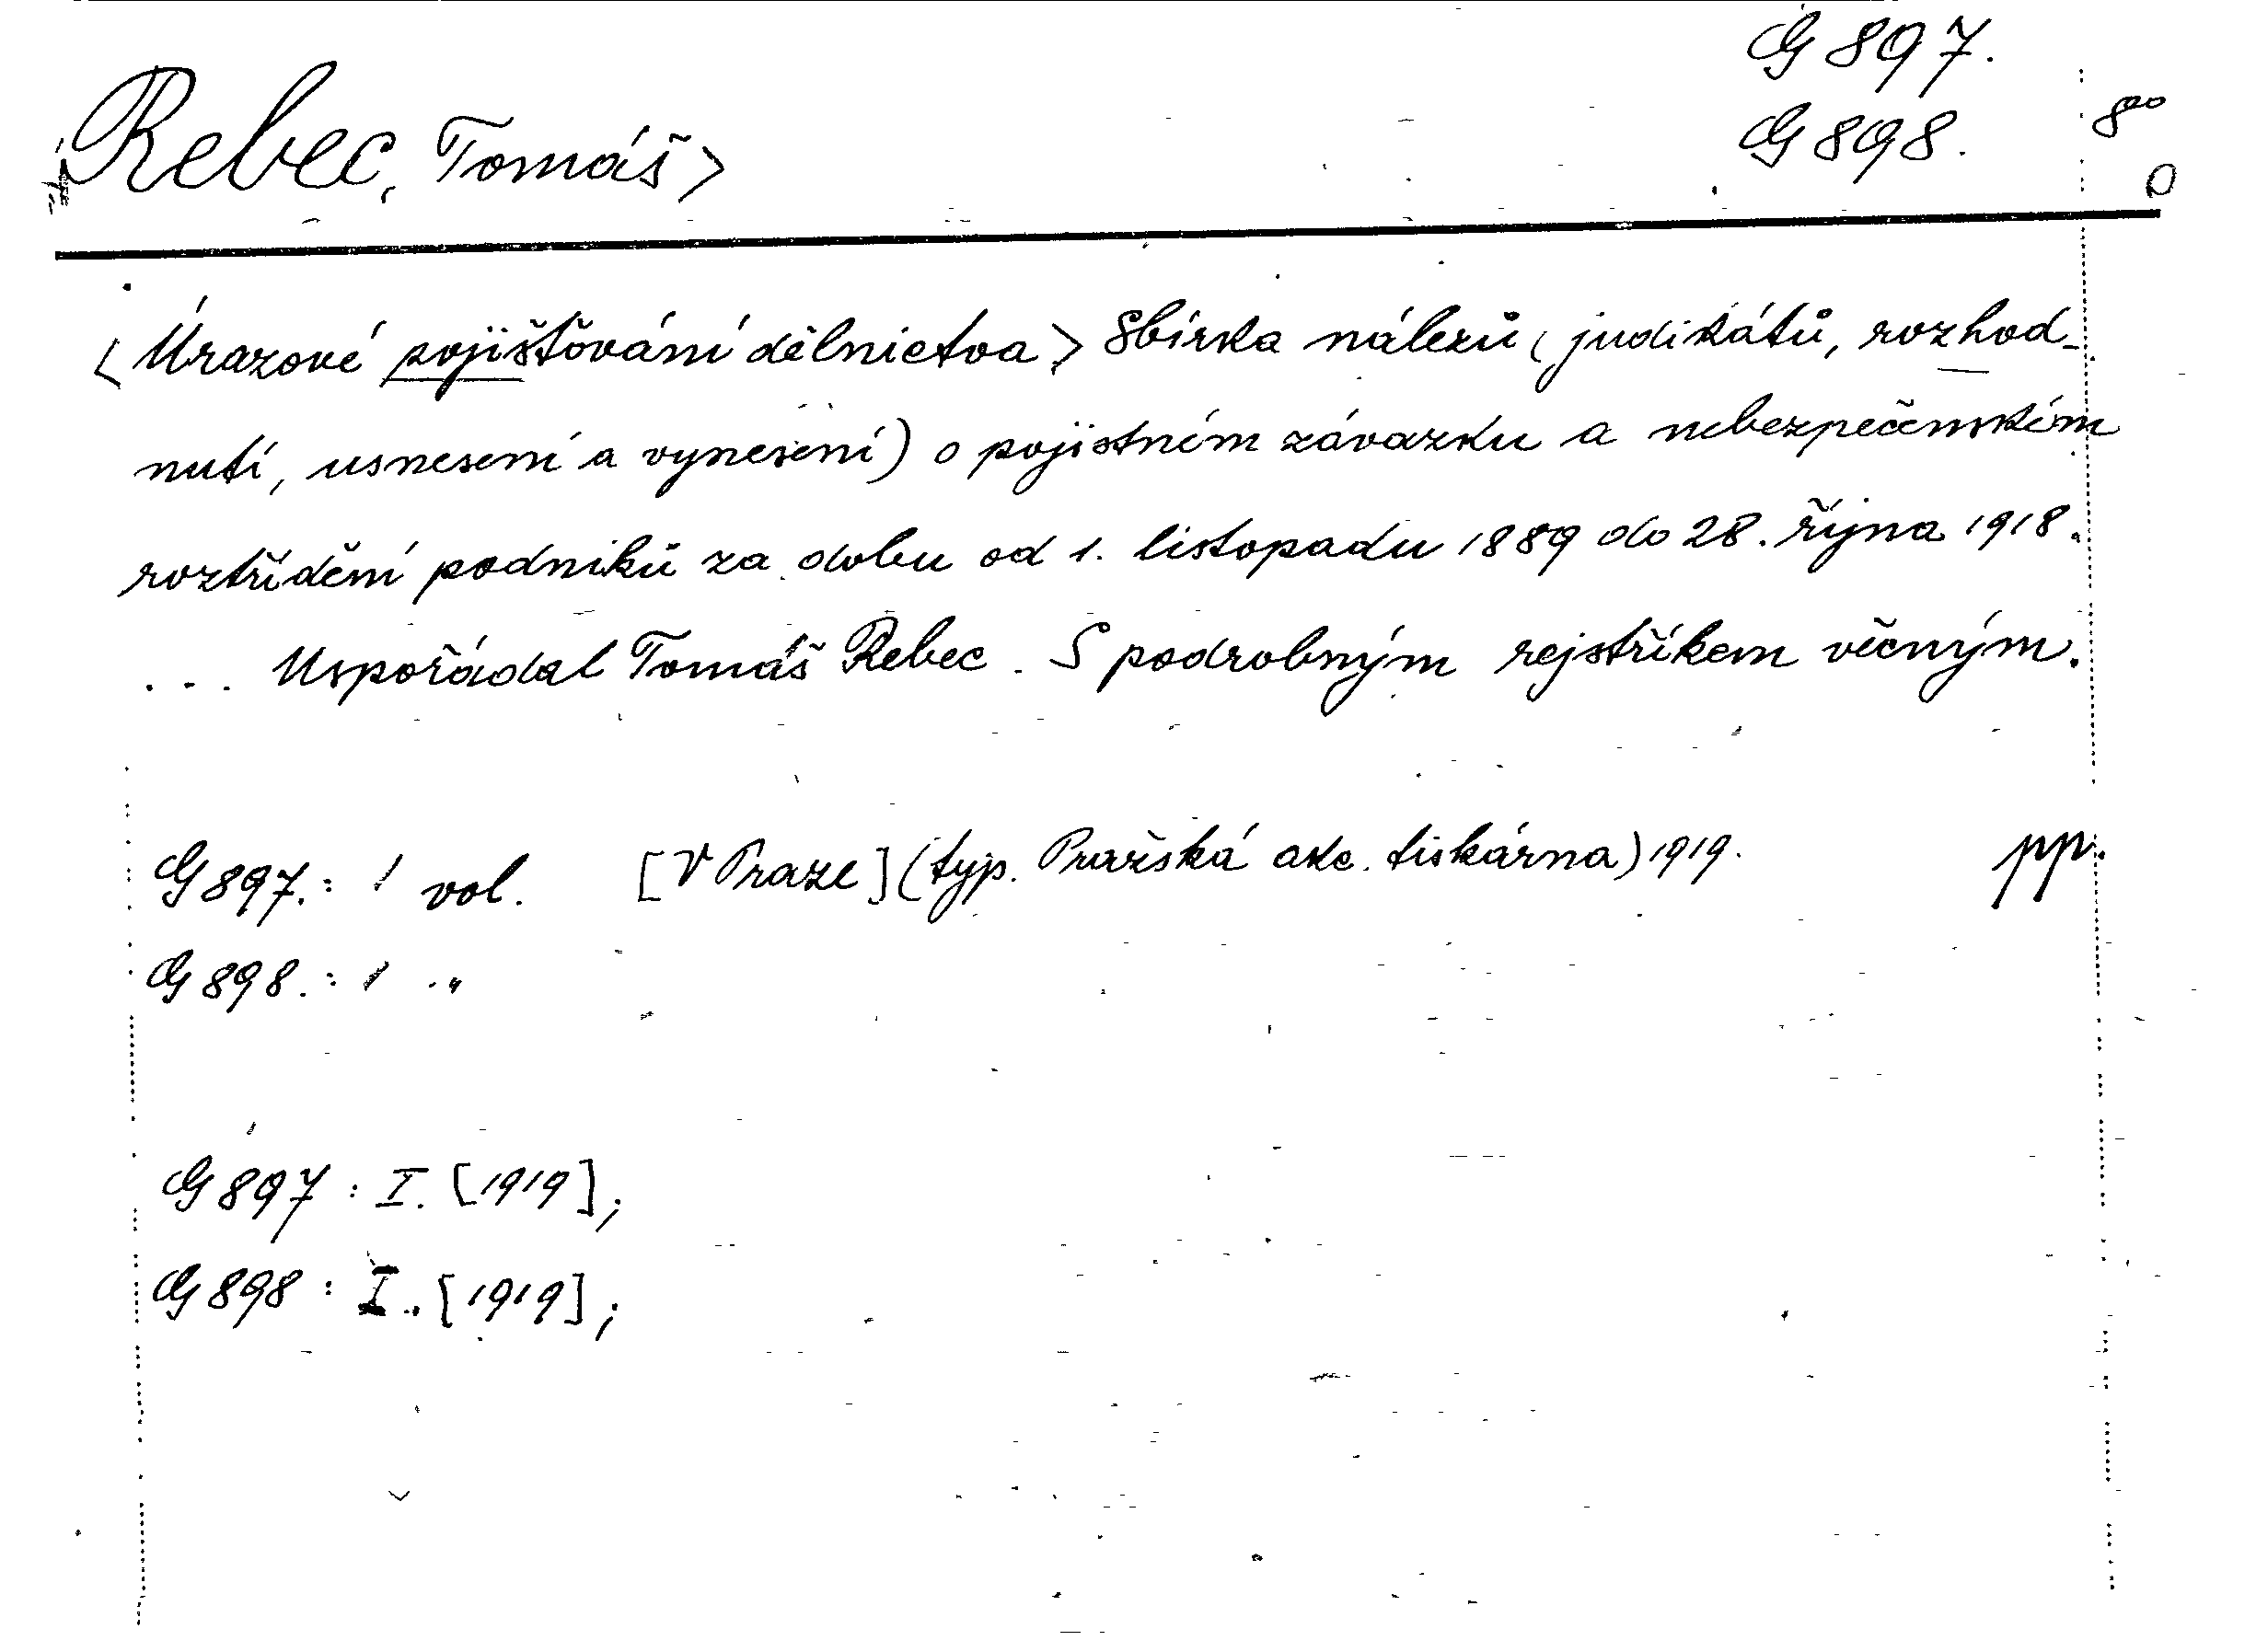 G 897.
G 898. 8°°
Rebec, Tomáš>
<Úrazové pojišťování dělnictva> Sbírka nálezů (judikátů, rozhod-
nutí, usnesení a vynesení) o pojistném závazku a nebezpečenském
roztřídění podniků za dobu od 1. listopadu 1889 do 28. října 1918.
... Uspořádal Tomáš Rebec. S podrobným rejstříkem věcným.
G 897.: 1 vol. [V Praze] (typ. Pražská akc. tiskárna) 1919. pp.
G 898.: 1 "
G 897: I. [1919];
G 898: I. [1919];